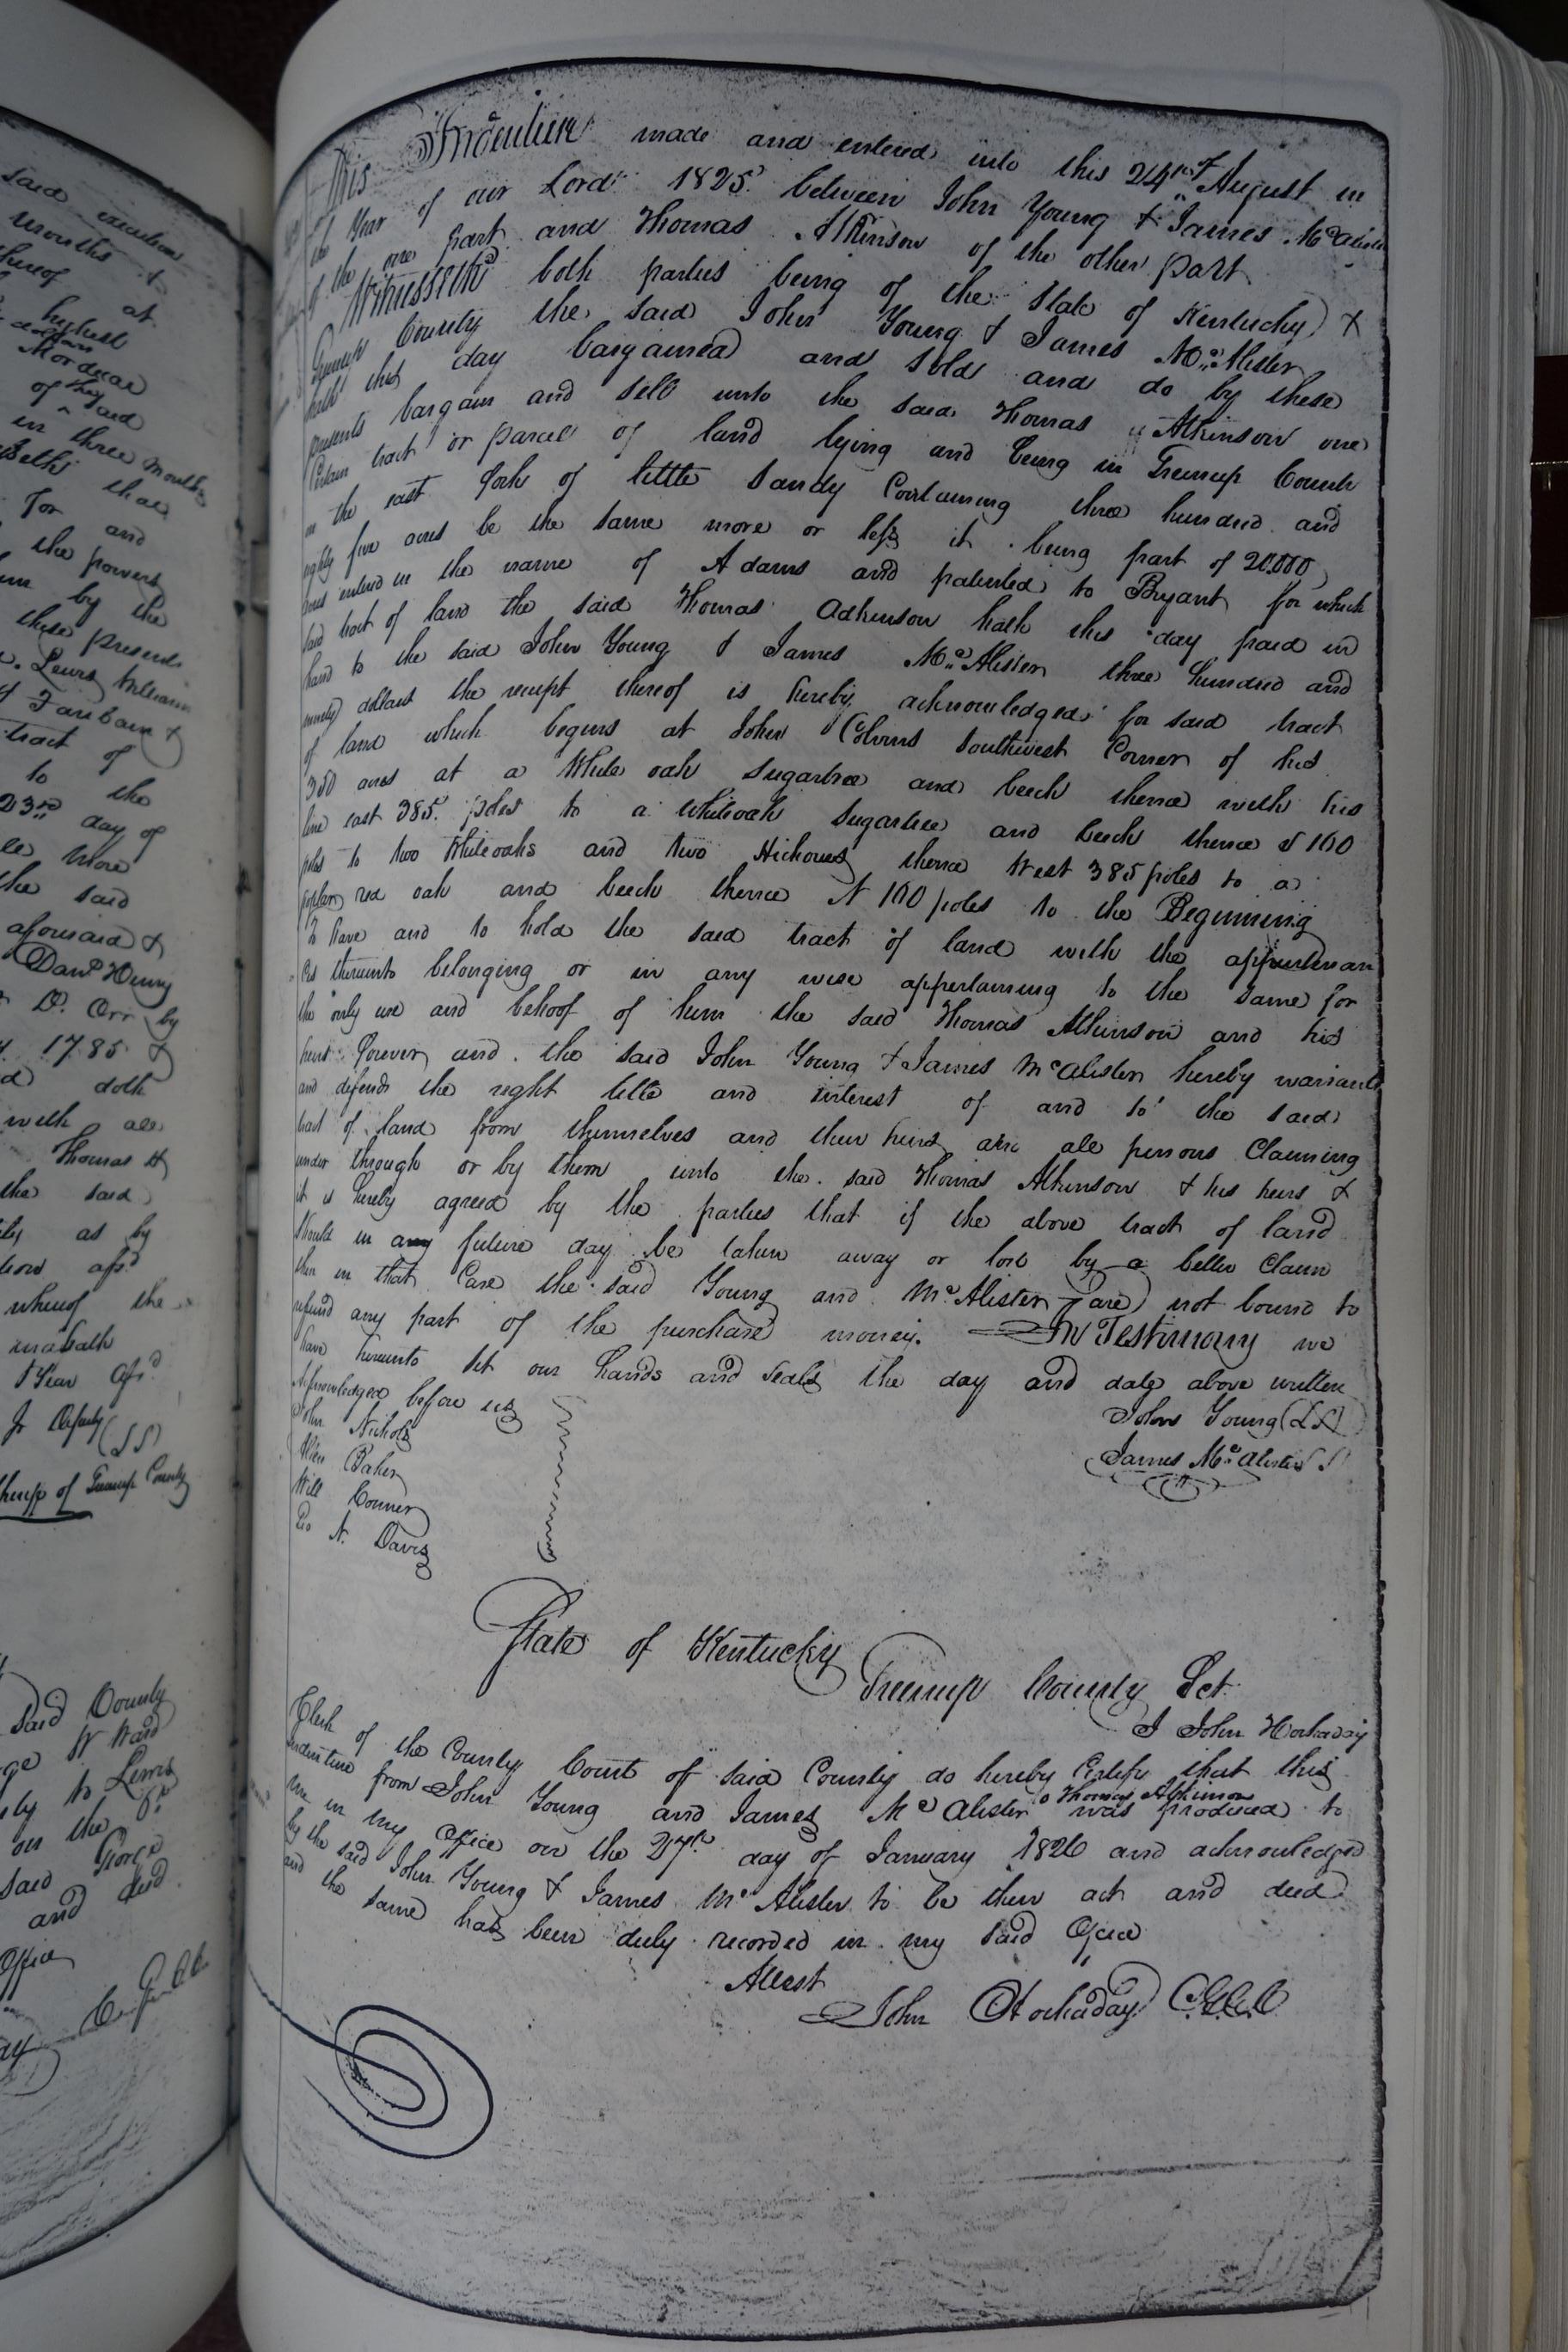 said execution
months &
thereof at
highest
Mordecai
of they said
in three months
that
For and
the powers
by the
these presents
Lewis William
& Fairbairn &
tract of
to the
23rd day of
more
the said
aforesaid &
Danl Henry
D. Orr by
1785 &
doth
with all
Thomas H
the said
as by
afsd
whereof the
& Year Afsd
Jr Deputy (SS)
Sheriff of Greenup County
said County
W Ward
to Lewis
on the
said George
and deed
Office
This Indenture made and entered into this 24th of August in
the Year of our Lord 1825 between John Young & James McAlister
of the one part and Thomas Atkinson of the other part
Witnesseth both parties being of the State of Kentucky &
Greenup County the said John Young & James Mc Alister
hath this day bargained and sold and do by these
presents bargain and sell unto the said Thomas Atkinson one
Certain tract or parcel of land lying and being in Greenup County
on the east fork of little Sandy Containing three hundred and
eighty five acres be the same more or less it being part of 20,000
acres entered in the name of Adams and patented to Bryant for which
said tract of land the said Thomas Adkinson hath this day paid in
hand to the said John Young & James Mc Alister three hundred and
ninety dollars the receipt thereof is hereby acknowledged for said tract
of land which begins at John Colvins Southwest Corner of his
350 acres at a White oak sugartree and beech thence with his
line east 385 poles to a whiteoak sugartree and beech thence S 160
poles to two Whiteoaks and two Hickorys thence West 385 poles to a
poplar red oak and beech thence N 160 poles to the Beginning
To have and to hold the said tract of land with the appurtenan
ces thereunto belonging or in any wise appertaining to the same for
the only use and behoof of him the said Thomas Atkinson and his
heirs forever and the said John Young & James McAlister hereby warrants
and defends the right title and interest of and to the said
tract of land from themselves and their heirs and all persons Claiming
under through or by them unto the said Thomas Atkinson & his heirs &
it is hereby agreed by the parties that if the above tract of land
Should in any future day be taken away or lost by a better Claim
then in that Case the said Young and Mc Alister are not bound to
refund any part of the purchase money. In Testimony we
have hereunto set our hands and seals the day and date above written
Acknowledged before us
John Young (LS)
John Nichols
James Mc Alister LS
Allen Baker
Will Conner
Geo N. Davis
State of Kentucky
Greenup County Sct
I John Hockaday
Clerk of the County Court of said County do hereby Certify that this
Indenture from John Young and James Mc Alister to Thomas Atkinson was produced to
me in my office on the 27th day of January 1826 and acknowledged
by the said John Young & James Mc Alister to be their act and deed
and the same has been duly recorded in my said Office
Attest
John Hockaday C.G.C.C